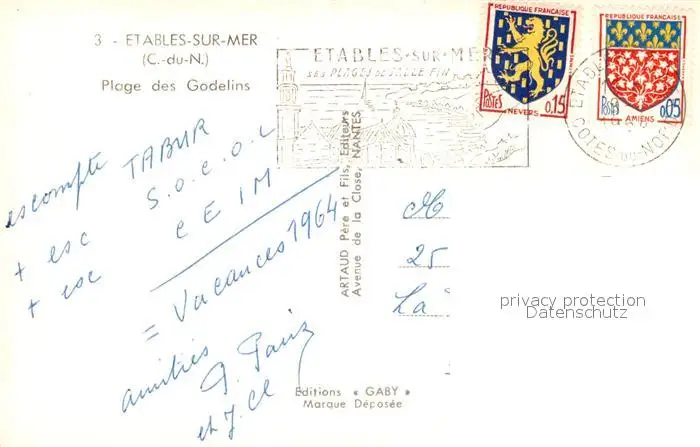 3 - ETABLES-SUR-MER
(C.-du-N.)
Plage des Godelins
ETABLES-SUR-MER
SES PLAGES DE SABLE FIN
REPUBLIQUE FRANÇAISE
POSTES
0,15
NEVERS
REPUBLIQUE FRANÇAISE
POSTES
0,05
AMIENS
ETABLES
COTES-DU-NORD
escompte TABUR
+ esc S.O.C.O.L
+ esc C E I M
= Vacances 1964
amitiés
et J. Cl
ARTAUD Père et Fils, Editeurs
Avenue de la Close, NANTES
M
25
La
privacy protection
Datenschutz
Editions « GABY »
Marque Déposée